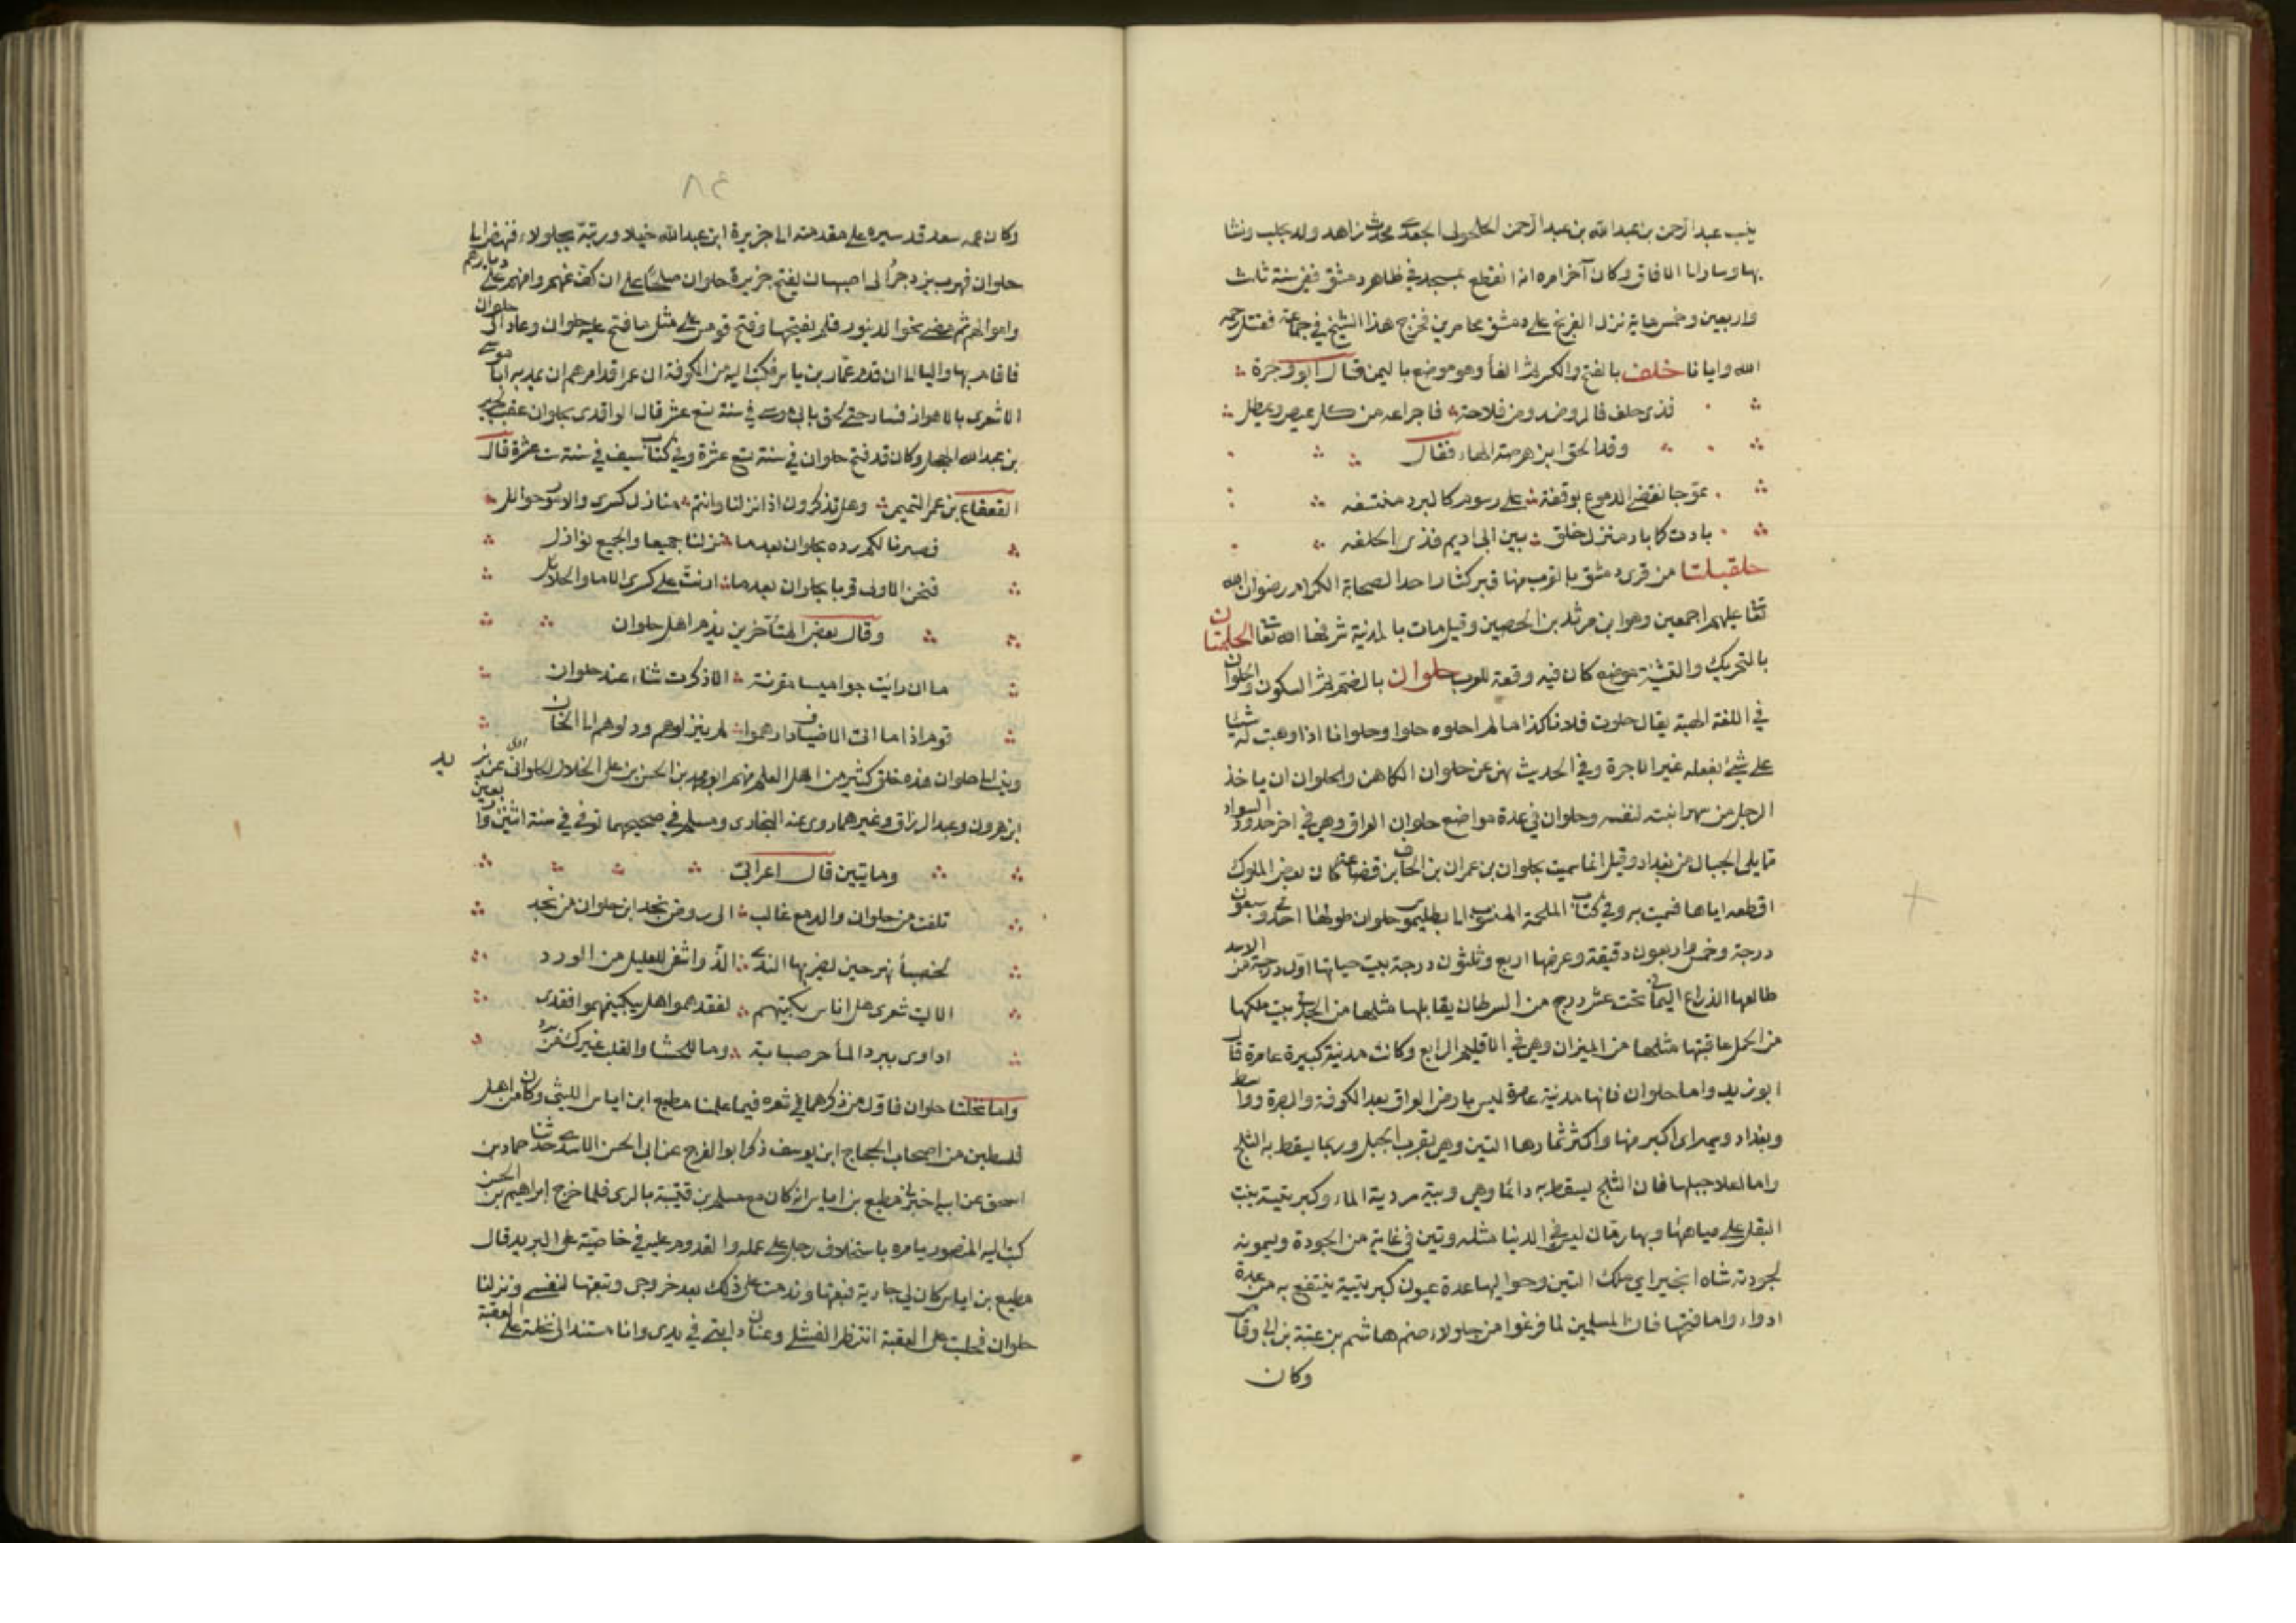 ينسب عبد الرحمن بن عبد الله بن عبد الرحمن الحلحولى الجعدى محدث زاهد ولد بحلب ونشا
بها وسافر الى الافاق وكان آخر امره انه انقطع بمسجد فى ظاهر دمشق ففى سنة ثلث
واربعين وخمس ماية نزل الفرنج على دمشق محاصرين فخرج هذا الشيخ فى جماعة فقتل رحمه
الله وايانا خلف بالفتح والكسر ثم الفأ وهو موضع باليمن قال ابو وجرة
فذى حلف فالروض روض فلاحة فاجراعه من كل عيص وغيطل
وقد الحق ابن هرمة الهاء فقال
عوجا نقض الدموع بوقفة على رسوم كالبرد منتسفه
بادت كما باد منزل خلق بين ابى اديم فذى الحلفه
حلقبلتا من قرى دمشق بالقرب منها قبر كناز احد الصحابة الكرام رضوان الله
تعا عليهم اجمعين وهو ابن مرثد بن الحصين وقيل مات بالمدنية شرفها الله تعا الحلمتان
بالتحريك والتثنية موضع كان فيه وقعة للعرب حلوان بالضم ثم السكون والحلوان
فى اللغة الهبة يقال حلوت فلانا كذا مالا احلوه حلوا وحلوانا اذا وهبت له شيئا
على شئ يفعله غير الاجرة وفى الحديث نهى عن حلوان الكاهن والحلوان ان ياخذ
الرجل من مهر ابنته لنفسه وحلوان فى عدة مواضع حلوان العراق وهى فى اخر حدود السواد
مما يلى الجبال من بغداد وقيل انما سميت بحلوان بن عمران بن الحاف بن قضاعة كان بعض الملوك
اقطعه اياها فسميت به وفى كتاب الملحمة المنسوب الى بطليموس حلوان طولها احدى وسبعون
درجة وخمس واربعون دقيقة وعرضها اربع وثلثون درجة بيت حياتها اول درجة من الاسد
طالعها الذراع اليمانى تحت عشر درج من السرطان يقابلها مثلها من الجدى بيت ملكها
من الحمل عاقبتها مثلها من الميزان وهى فى الاقليم الرابع وكانت مدنية كبيرة عامرة قال
ابو زيد واما حلوان فانها مدنية عامرة ليس بارض العراق بعد الكوفة والبصرة وواسط
وبغداد وسمراى اكبر منها واكثر ثمارها التين وهى بقرب الجبل وربما يسقط به الثلج
واما لعلا جبلها فان الثلج يسقط به دائما وهى وبية مردية الماء وكبريتية ينبت
البقل على مياهها وبها رمان ليس فى الدنيا مثله وتين فى غاية من الجودة ويسمونه
لجودته شاه انجير اى ملك التين وحواليها عدة عيون كبريتية ينتفع به من عدة
ادواء واما فتحها فان المسلمين لما فرغوا من جلولاء ضم هاشم بن عتبة بن ابى وقاص
وكان
٨٤
وكان عمه سعد قد سيره على مقدمته الى جزيرة ابن عبد الله خيلا ورتبه بجلولاء فنهض الى
حلوان فهرب يزدجر الى اصبهان لفتح جزيرة حلوان صلحا على ان كف عنهم وامنهم على دمايهم
واموالهم ثم مضى نحو الدينور فلم يفتحها وفتح قومس على مثل ما فتح عليه حلوان وعاد الى حلوان
فاقام بها واليا الى ان قدم عمار بن ياسر فكتب اليه من الكوفة ان عمر قد امرهم ان يمد به ابا موسى
الاشعرى بالاهواز فسار حتى لحق بابى موسى فى سنة تسع عشر قال الواقدى بحلوان عقب جرير
بن عبد الله البجلى وكان قد فتح حلوان فى سنة تسع عشرة وفى كتاب سيف فى سنة ست عشرة قال
القعقاع بن عمر التميمى وهل تذكرون اذ نزلنا وانتم منازل كسرى والامور حوايل
فصرنا لكم رده بحلوان بعد ما نزلنا جميعا والجميع نوازل
فنحن الاولى فزنا بحلوان بعد ما ارنت على كسرى الاما والحلايل
وقال بعض المتأخرين يذم اهل حلوان
ما ان رايت جواميسا مقرنة الا ذكرت ثناء عند حلوان
قوم اذا ما اتى الاضياف دارهموا لم ينزلوهم ودلوهم الى الخان
وينسب الى حلوان هذه خلق كثير من اهل العلم منهم ابو محمد بن الحسن بن على الخلال الحلوانى عن يزيد
ابن هرون وعبد الرزاق وغيرهما روى عنه البخارى ومسلم فى صحيحهما توفى فى سنة اثنين واربعين
وماتيين قال اعرابى
تلفت من حلوان والدمع غالب الى روض نجد اين حلوان من نجد
لحصبأ نهر حين يضربها الندى الذ واشفى للعليل من الورد
الا ليت شعرى هل اناس بكيتهم لفقدهموا هل يبكينهموا فقدى
اداوى ببرد المأ حر صبابة وما للحشا والقلب غيرك من برد
واما نخلتا حلوان فاول من ذكرهما فى شعره فيما علمنا مطيع ابن اياس الليثى وكان من اهل
فلسطين من اصحاب الحجاج ابن يوسف ذكر ابو الفرج عن ابى الحسن الاسدى حدثنا حماد بن
اسحق عن ابيه اخبرنى مطيع بن اياس انه كان مع مسلم بن قتيبة بالرى فلما خرج ابراهيم بن الحسن
كتب اليه المنصور يامره باستخلاف رجل على عمله والقدوم عليه فى خاصته على البريد قال
مطيع بن اياس كان لى جارية فبعتها وندمت على ذلك بعد خروجى وتبعتها نفسى ونزلنا
حلوان فجلست على العقبة انتظر الفشلى وعنان دابتى فى يدى وانا مستند الى نخلة على العقبة